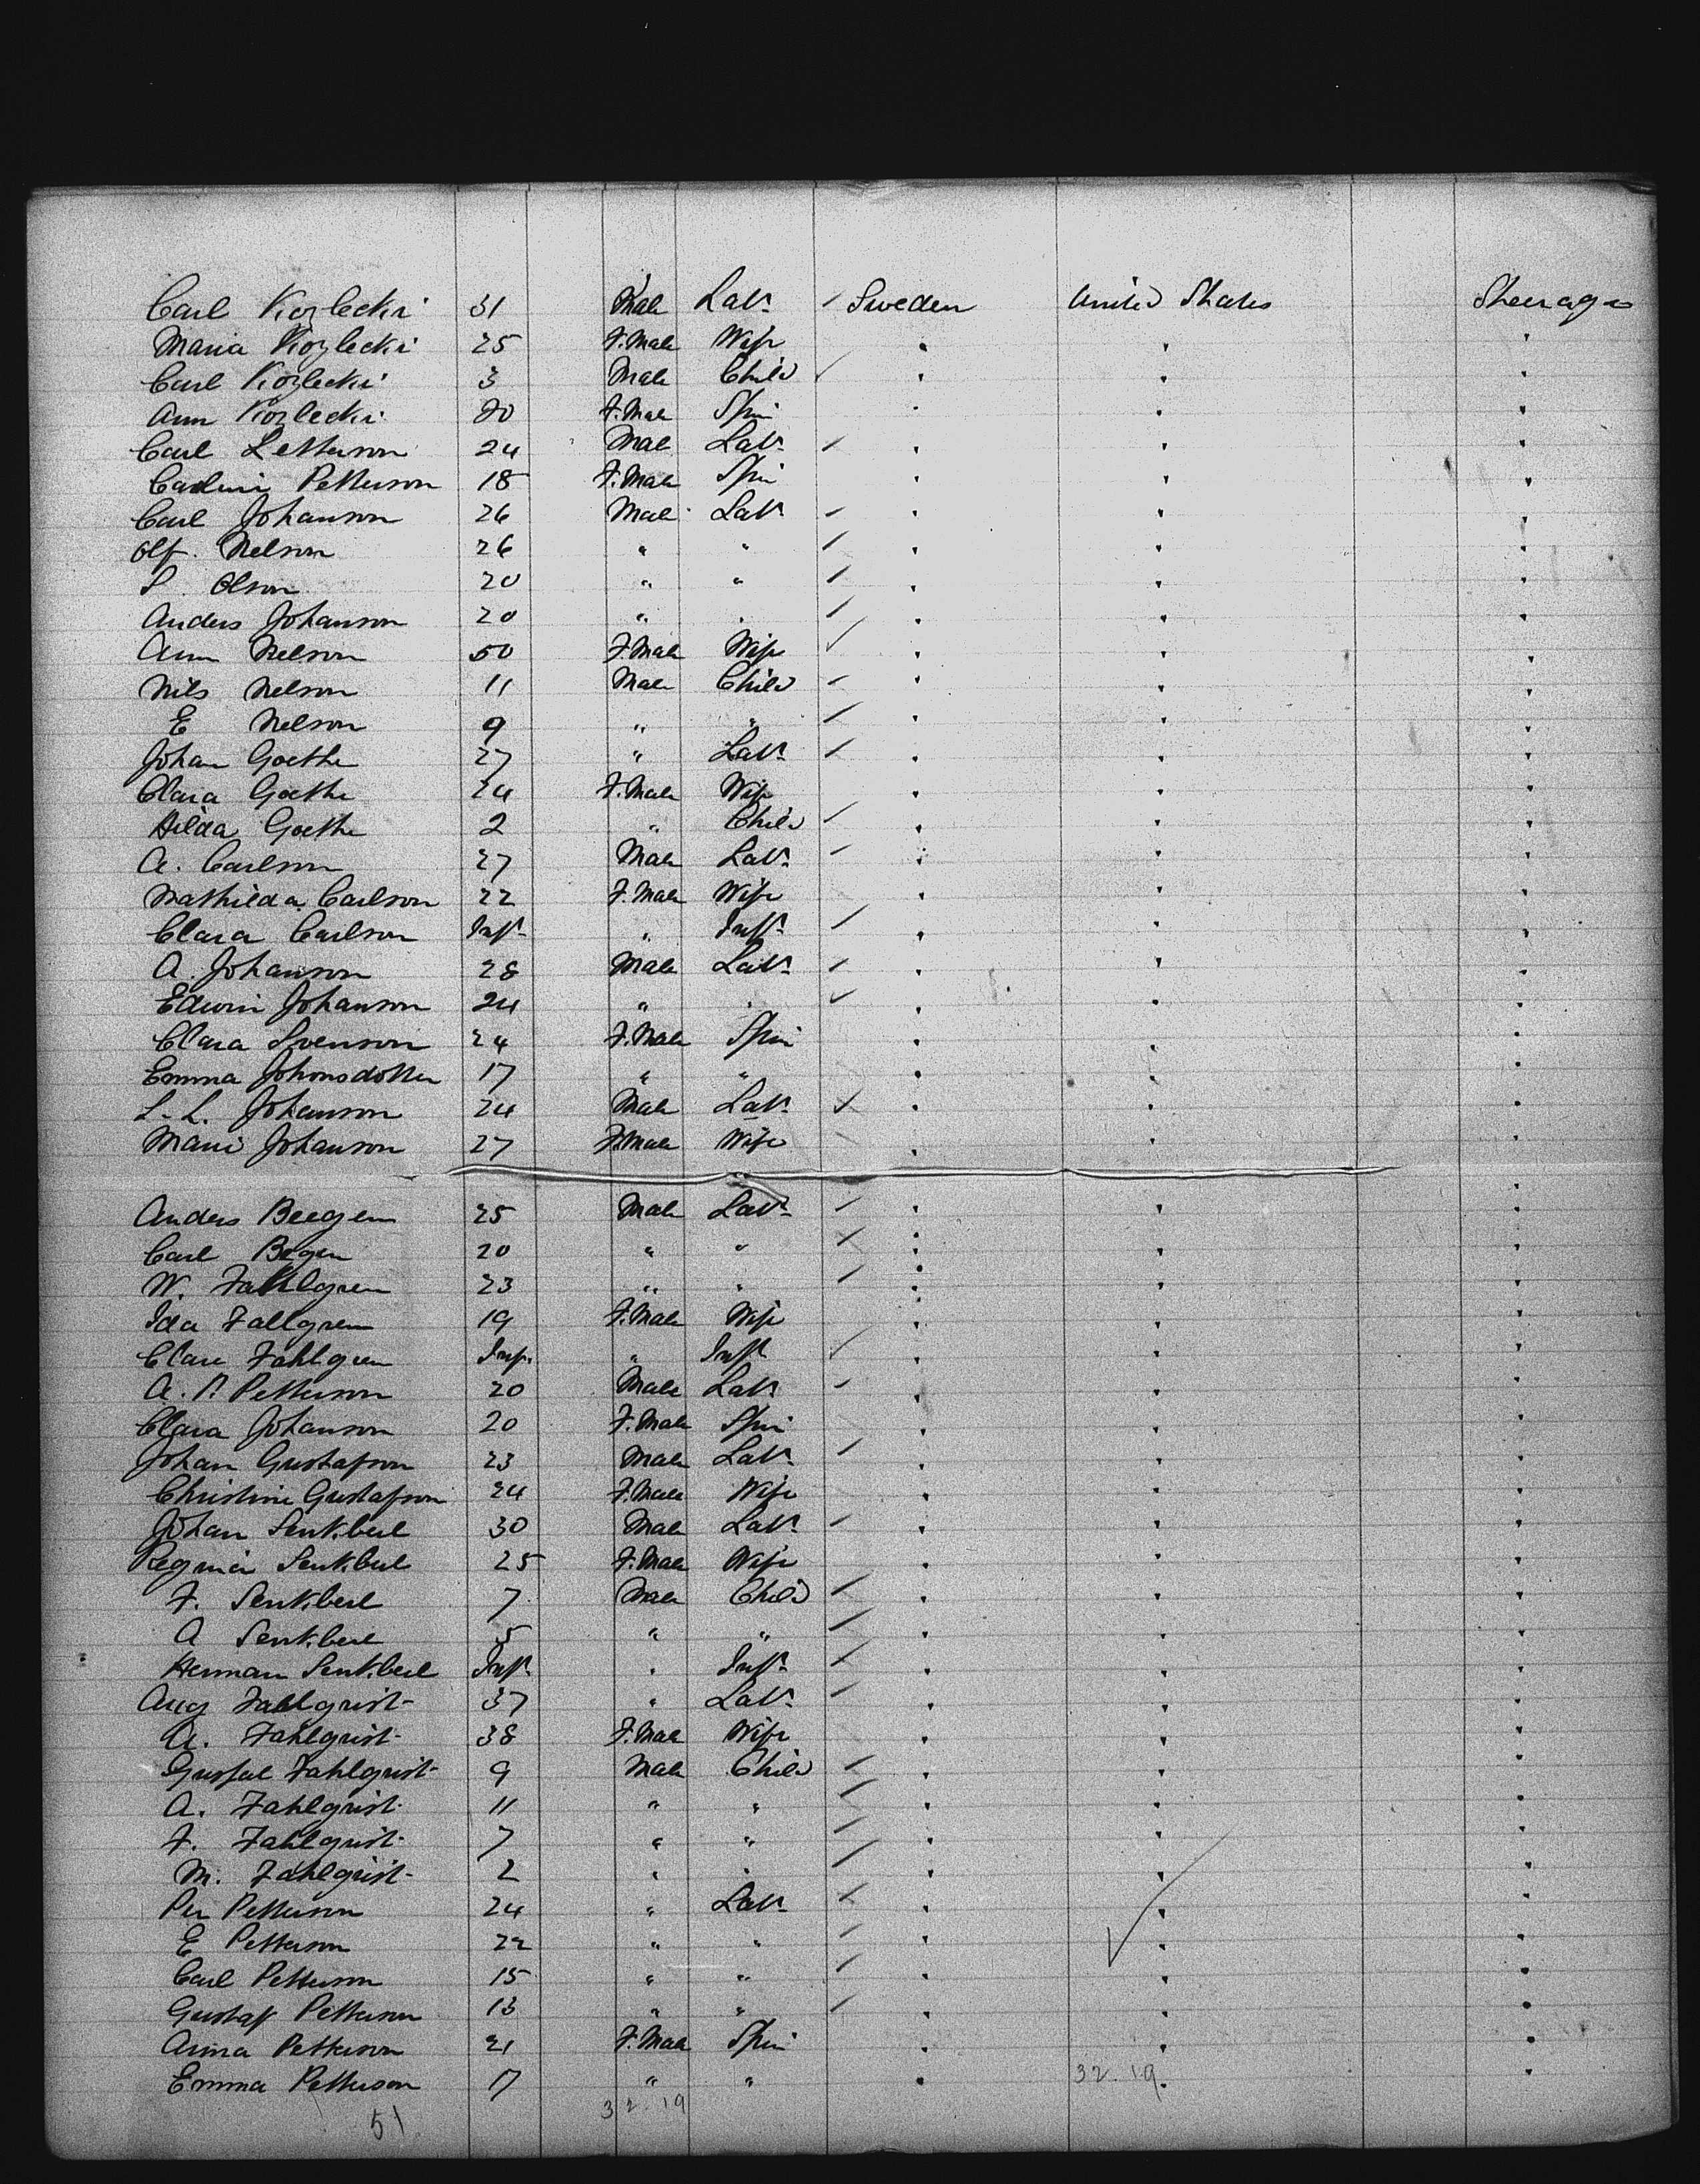 Carl Kozlecki 31 Male Labr Sweden United States Steerage
Maria Kozlecki 25 F.Male Wife " " "
Carl Kozlecki 3 Male Child " " "
Ann Kozlecki 20 F.Male Spin " " "
Carl Letterson 24 Male Labr " " "
Carolini Petterson 18 F.Male Spin " " "
Carl Johanson 26 Male Labr " " "
Olf. Nelson 26 " " " " "
S. Olson 20 " " " " "
Anders Johanson 20 " " " " "
Ann Nelson 50 F.Male Wife " " "
Nils Nelson 11 Male Child " " "
E Nelson 9 " " " " "
Johan Goethe 27 " Labr " " "
Clara Goethe 24 F.Male Wife " " "
Hilda Goethe 2 " Child " " "
A. Carlson 27 Male Labr " " "
Mathilda Carlson 22 F.Male Wife " " "
Clara Carlson Inft " Inft " " "
A. Johanson 28 Male Labr " " "
Edwin Johanson 24 " " " " "
Clara Svenson 24 F.Male Spin " " "
Emma Johonsdotter 17 " " " " "
L. L. Johanson 24 Male Labr " " "
Marie Johanson 27 F.Male Wife " " "
Anders Beegen 25 Male Labr " " "
Carl Begen 20 " " " " "
W. Fahlgren 23 " " " " "
Ida Fallgren 19 F.Male Wife " " "
Clare Fahlgren Inf. " Inft " " "
A. P. Petterson 20 Male Labr " " "
Clara Johanson 20 F.Male Spin " " "
Johan Gustafson 23 Male Labr " " "
Christine Gustafson 24 F.Male Wife " " "
Johan Senkbeil 30 Male Labr " " "
Regina Senkbeil 25 F.Male Wife " " "
F. Senkbeil 7 Male Child " " "
A Senkbeil 5 " " " " "
Herman Senkbeil Inft " Inft " " "
Aug Fahlgrist 37 " Labr " " "
A. Fahlgrist 38 F.Male Wife " " "
Gustal Fahlgrist 9 Male Child " " "
A. Fahlgrist 11 " " " " "
F. Fahlgrist 7 " " " " "
M. Fahlgrist 2 " " " " "
Per Petterson 24 " Labr " " "
E Petterson 22 " " " " "
Carl Petterson 15 " " " " "
Gustaf Petterson 13 " " " " "
Anna Petterson 21 F.Male Spin " " "
Emma Petterson 17 " " " 32.19. "
51 32.19